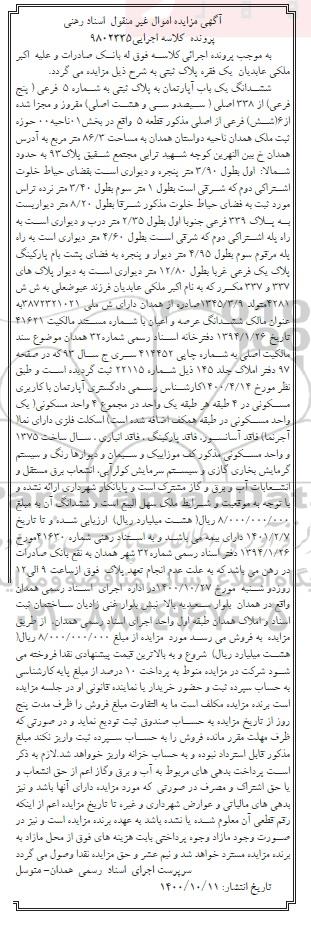 آگهی مزایده اموال غیر منقول اسناد رهنی
پرونده کلاسه اجرایی۹۸۰۲۲۳۵
به موجب پرونده اجرائی کلاسه فوق له بانک صادرات و علیه اکبر
ملکی عابدیان یک فقره پلاک ثبتی به شرح ذیل مزایده می گردد.
ششدانگ یک باب آپارتمان به پلاک ثبتی به شماره ۵ فرعی ( پنج
فرعی) از ۳۳۸ اصلی ( سیصدو سی و هشت اصلی) مفروز و مجزا شده
از۶(شش) فرعی از اصلی مذکور قطعه ۵ واقع در بخش۰۱ناحیه۰۰ حوزه
ثبت ملک همدان ناحیه دواستان همدان به مساحت ۸۶/۳ متر مربع به آدرس
همدان خ بین النهرین کوچه شهید ترابی مجتمع شقیق پلاک۹۳ به حدود
شمالا: اول بطول ۳/۹۰ متر پنجره و دیواری است بفضای حیاط خلوت
اشتراکی دوم که شرقی است بطول ۱ متر سوم بطول ۳/۴۰ متر نرده تراس
مورد ثبت به فضای حیاط خلوت مذکور شرقا بطول ۸/۲۰ متر دیواریست
به پلاک ۳۳۹ فرعی جنوبا اول بطول ۲/۳۵ متر درب و دیواری است به
راه پله اشتراکی دوم که شرقی است بطول ۴/۶۰ متر دیواری است به راه
پله مرقوم سوم بطول ۴/۹۵ متر دیوار و پنجره به فضای پشت بام پارکینگ
پلاک یک فرعی غربا بطول ۱۲/۸۰ متر دیواری است به دیوار پلاک های
۳۳۷ و ۳۳۷ مکرر که به نام اکبر ملکی عابدیان فرزند عیوضعلی به ش ش
۴۲۸۱متولد ۱۳۴۵/۳/۹صادره از همدان دارای ش ملی ۳۸۷۲۳۲۱۰۲۱به
عنوان مالک ششدانگ عرصه و اعیان با شماره مستند مالکیت ۴۱۶۲۱
تاریخ ۱۳۹۴/۱/۲۶ دفترخانه اسناد رسمی شماره۳۲ همدان موضوع سند
مالکیت اصلی به شماره چاپی ۴۱۳۴۵۲ سری ج سال ۹۳ که در صفحه
۹۷ دفتر املاک جلد ۱۴۵ ذیل شماره ۲۲۱۱۵ ثبت گردیده است و طبق
نظر مورخ ۱۴۰۰/۴/۱۴کارشناس رسمی دادگستری آپارتمان با کاربری
مسکونی در ۴ طبقه هر طبقه یک واحد در مجموع ۴ واحد مسکونی( یک
واحد مسکونی در طبقه همکف اضافه شده است) اسکلت فلزی دارای نما(
آجرنما) فاقد آسانسور، فاقد پارکینگ ، فاقد انباری ، سال ساخت ۱۳۷۵
و واحد مسکونی مذکور کف موزاییک و سیمان و دیوارها رنگ و سیستم
گرمایش بخاری گازی و سیستم سرمایش کولرآبی، انشعاب برق مستقل و
انشعابات آب و برق و گاز مشترک است و پایانکار شهرداری ارائه نشده و
با توجه به موقعیت و شرایط ملک سهل البیع است و ششدانگ آن به مبلغ
۸/۰۰۰/۰۰۰/۰۰۰ ریال( هشت میلیارد ریال) ارزیابی شده و تا تاریخ
۱۴۰۱/۲/۷ دارای بیمه می باشید و به استناد رهنی شماره ۴۱۶۳۰مورخ
۱۳۹۴/۱/۲۶ دفتر اسناد رسمی شماره۳۲ شهر همدان به نفع بانک صادرات
در رهن می باشد که به علت عدم انجام تعهد پلاک فوق ازساعت ۹ الی۱۲
روزدو شنبه مورخ ۱۴۰۰/۱۰/۲۷در اداره اجرای اسناد رسمی همدان
واقع در همدان بلوار سعیدیه بالا نبش بلوار غنی زادیان ساختمان ثبت
اسناد و املاک همدان طبقه اول واحد اجرای اسناد رسمی همدان. از طریق
مزایده به فروش می رسد مورد مزایده از مبلغ ۸/۰۰۰/۰۰۰/۰۰۰ ریال(
هشت میلیارد ریال) شروع و به بالاترین قیمت پیشنهادی نقدا فروخته می
شود شرکت در مزایده منوط به پرداخت ۱۰ درصد از مبلغ پایه کارشناسی
به حساب سپرده ثبت و حضور خریدار یا نماینده قانونی او در جلسه مزایده
است برنده مزایده مکلف است ما به التفاوت مبلغ فروش را ظرف مدت پنج
روز از تاریخ مزایده به حساب صندوق ثبت تودیع نماید و در صورتی که
ظرف مهلت مقرر مانده فروش را به حساب سپرده ثبت واریز نکند مبلغ
مذکور قابل استرداد نبوده و به حساب خزانه واریز خووا‌هد شد.لازم به ذکر
است پرداخت بدهی های مربوط به آب و برق وگاز اعم از حق انشعاب و
یا حق اشتراک و مصرف در صورتی که مورد مزایده دارای آنها باشد و نیز
بدهی های مالیاتی و عوارض شهرداری و غیره تا تاریخ مزایده اعم از اینکه
رقم قطعی آن معلوم شده یا نشده باشد به عهده برنده مزایده است و نیز در
صورت وجود مازاد وجوه پرداختی بابت هزینه های فوق از محل مازاد به
برنده مزایده مسترد خواهد شد و نیم عشر و حق مزایده نقدا وصول می گردد
سرپرست اجرای اسناد رسمی همدان- متوسل
تاریخ انتشار: ۱۴۰۰/۱۰/۱۱